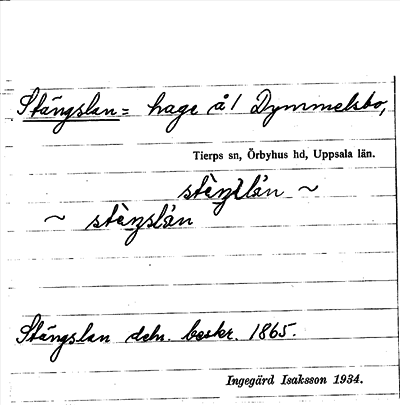 Stängslan = hage å 1 Dymmelsbo,
Tierps sn, Örbyhus hd, Uppsala län.
~
~
Stängslan dchr. beskr. 1865.
Ingegärd Isaksson 1934.